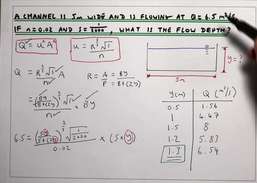 A CHANNEL IS 5m WIDE AND IS FLOWING AT Q = 6.5 m³/s
IF n = 0.02 AND S = 1/2000, WHAT IS THE FLOW DEPTH?
Q = u A
u = R^(2/3) √S / n
y = ?
5m
Q = R^(2/3) √S A / n
R = A/P = By/(B+(2y))
= (By/(B+2y))^(2/3) √S × By / n
6.5 = (5(y)/(5+2(y)))^(2/3) √(1/2000) × (5×(y)) / 0.02
y (m) Q (m³/s)
0.5 1.56
1 4.47
1.5 8
1.2 5.83
1.3 6.54